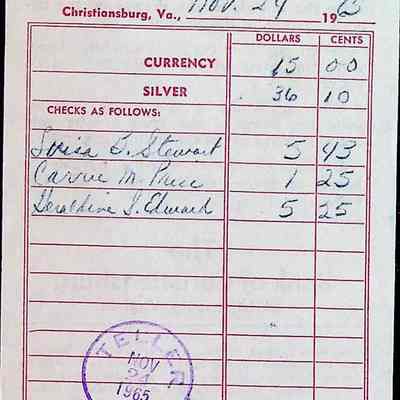 Christionsburg, Va., Nov. 24 1965
DOLLARS CENTS
CURRENCY 15 00
SILVER 36 10
CHECKS AS FOLLOWS:
S. Stewart 5 43
Carrie M. Price 1 25
Geraldine S. Edward 5 25
TELLER
NOV
24
1965